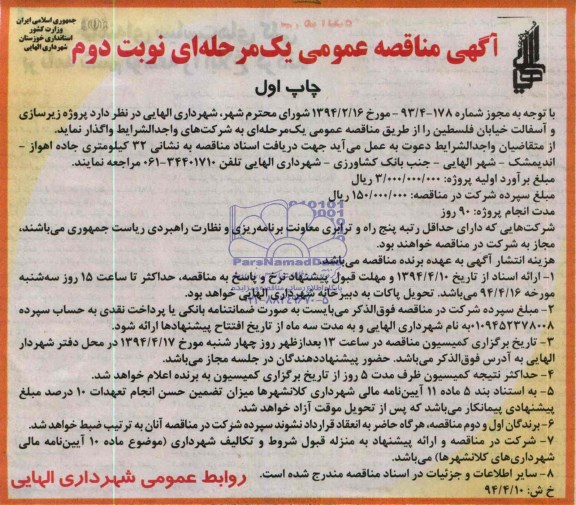 جمهوری اسلامی ایران
وزارت کشور
استانداری خوزستان
شهرداری الهایی
آگهی مناقصه عمومی یک‌مرحله‌ای نوبت دوم
چاپ اول
با توجه به مجوز شماره ۱۷۸-۹۳/۴ - مورخ ۱۳۹۴/۲/۱۶ شورای محترم شهر، شهرداری الهایی در نظر دارد پروژه زیرسازی
و آسفالت خیابان فلسطین را از طریق مناقصه عمومی یک‌مرحله‌ای به شرکت‌های واجدالشرایط واگذار نماید.
از متقاضیان واجدالشرایط دعوت به عمل می‌آید جهت دریافت اسناد مناقصه به نشانی ۳۲ کیلومتری جاده اهواز -
اندیمشک - شهر الهایی - جنب بانک کشاورزی - شهرداری الهایی تلفن ۳۴۴۰۱۷۱۰-۰۶۱ مراجعه نمایند.
مبلغ برآورد اولیه پروژه: ۳/۰۰۰/۰۰۰/۰۰۰ ریال
مبلغ سپرده شرکت در مناقصه: ۱۵۰/۰۰۰/۰۰۰ ریال
مدت انجام پروژه: ۹۰ روز
شرکت‌هایی که دارای حداقل رتبه پنج راه و ترابری معاونت برنامه‌ریزی و نظارت راهبردی ریاست جمهوری می‌باشند،
مجاز به شرکت در مناقصه خواهند بود.
هزینه انتشار آگهی به عهده برنده مناقصه می‌باشد.
۱- ارائه اسناد از تاریخ ۱۳۹۴/۴/۱۰ و مهلت قبول پیشنهاد نرخ و پاسخ به مناقصه، حداکثر تا ساعت ۱۵ روز سه‌شنبه
مورخه ۹۴/۴/۱۶ می‌باشد. تحویل پاکات به دبیرخانه شهرداری الهایی خواهد بود.
۲- مبلغ سپرده شرکت در مناقصه فوق‌الذکر می‌بایست به صورت ضمانتنامه بانکی یا پرداخت نقدی به حساب سپرده
۰۱۰۹۴۵۲۳۷۸۰۰۸ به نام شهرداری الهایی و به مدت سه ماه از تاریخ افتتاح پیشنهادها ارائه شود.
۳- تاریخ برگزاری کمیسیون مناقصه در ساعت ۱۳ بعدازظهر روز چهار شنبه مورخ ۱۳۹۴/۴/۱۷ در محل دفتر شهردار
الهایی به آدرس فوق‌الذکر می‌باشد. حضور پیشنهاددهندگان در جلسه مجاز می‌باشد.
۴- حداکثر نتیجه کمیسیون ظرف مدت ۵ روز از تاریخ برگزاری کمیسیون به برنده اعلام خواهد شد.
۵- به استناد بند ۵ ماده ۱۱ آیین‌نامه مالی شهرداری کلانشهرها میزان تضمین حسن انجام تعهدات ۱۰ درصد مبلغ
پیشنهادی پیمانکار می‌باشد که پس از تحویل موقت آزاد خواهد شد.
۶- برندگان اول و دوم مناقصه، هرگاه حاضر به انعقاد قرارداد نشوند سپرده شرکت در مناقصه آنان به ترتیب ضبط خواهد شد.
۷- شرکت در مناقصه و ارائه پیشنهاد به منزله قبول شروط و تکالیف شهرداری (موضوع ماده ۱۰ آیین‌نامه مالی
شهرداری‌های کلانشهرها) می‌باشد.
۸- سایر اطلاعات و جزئیات در اسناد مناقصه مندرج شده است.
خ ش: ۹۴/۴/۱۰
روابط عمومی شهرداری الهایی
ParsNamadData